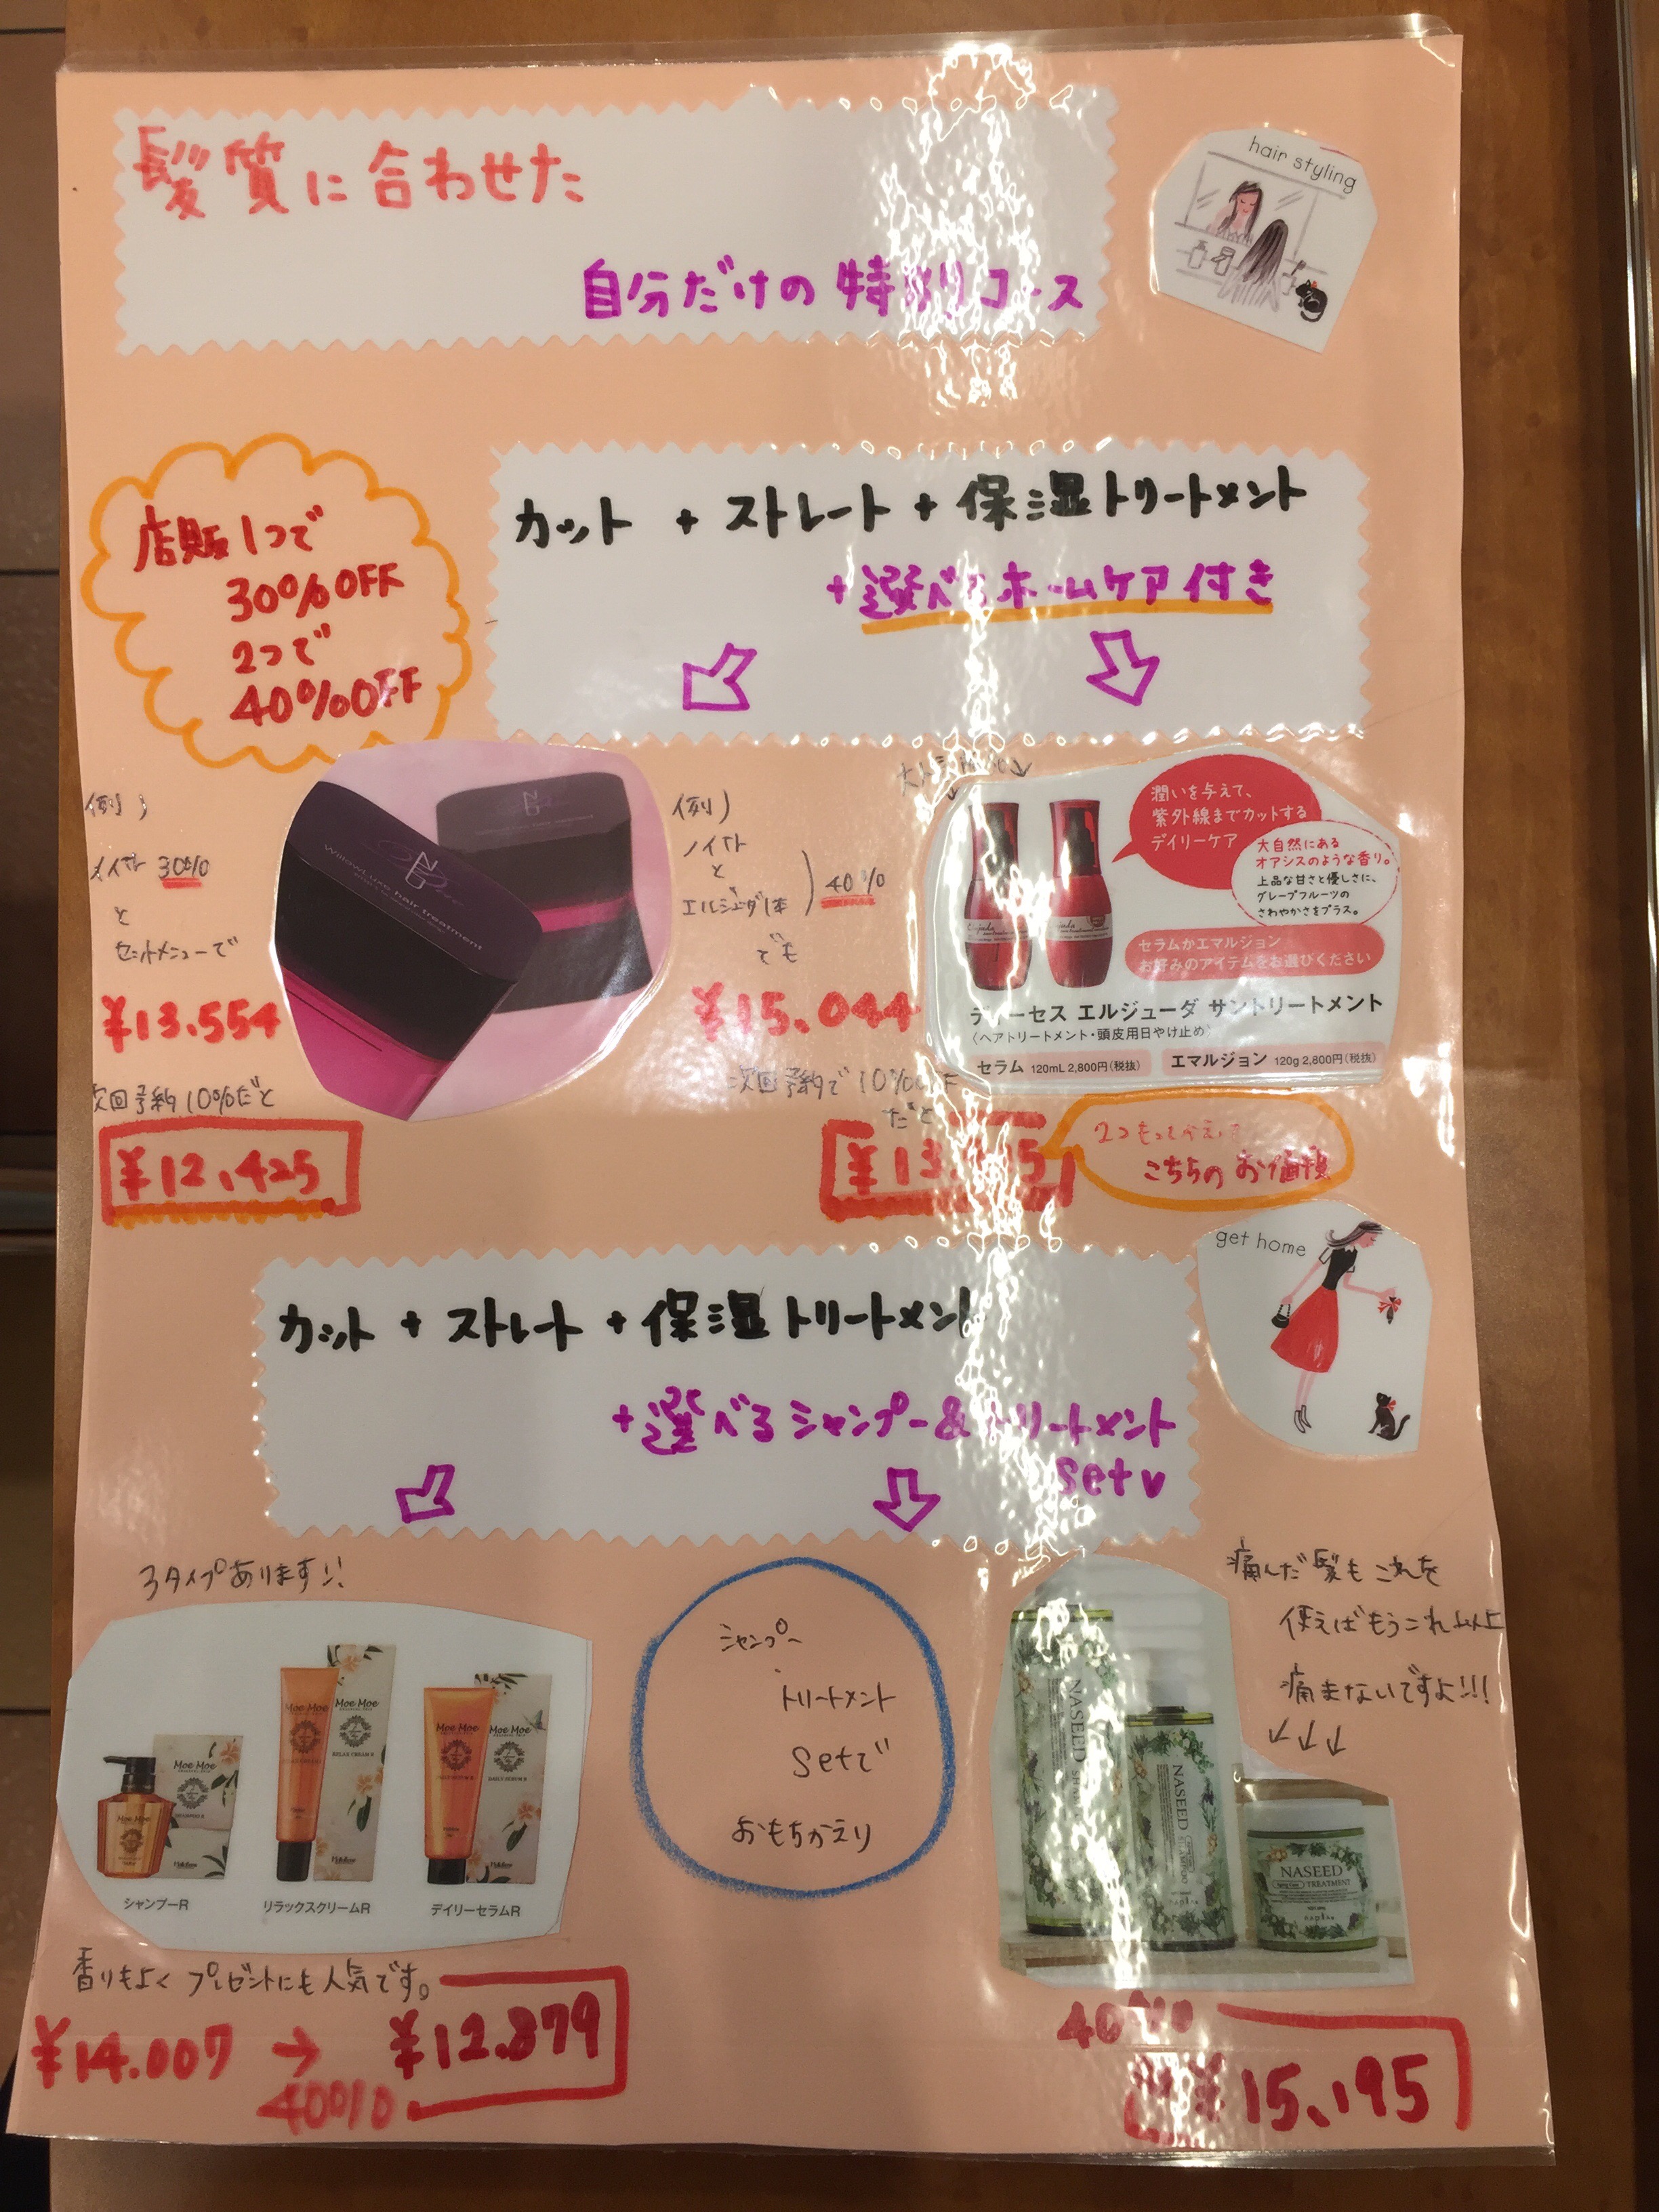 髪質に合わせた
自分だけの特別コース
hair styling
店販1つで
30%OFF
2つで
40%OFF
カット + ストレート + 保湿トリートメント
+選べるホームケア付き
例)
30%
と
セットメニューで
¥13.554
次回予約10%だと
¥12,425
WillowLuxe hair treatment
例)
と
エルジューダ1本
40%
でも
¥15.044
次回予約で10%OFF
だと
潤いを与えて、
紫外線までカットする
デイリーケア
大自然にある
オアシスのような香り。
上品な甘さと優しさに、
グレープフルーツの
さわやかさをプラス。
セラムかエマルジョン
お好みのアイテムをお選びください
ディーセス エルジューダ サントリートメント
〈ヘアトリートメント・頭皮用日やけ止め〉
セラム 120mL 2,800円(税抜)
エマルジョン 120g 2,800円(税抜)
こちらのお値段
get home
カット + ストレート + 保湿トリートメント
+選べるシャンプー&トリートメント
set
3タイプあります!!
Moe Moe
Moe Moe
Moe Moe
RELAX CREAM R
Moe Moe
Moe Moe
DAILY SERUM R
シャンプーR
リラックスクリームR
デイリーセラムR
香りもよく プレゼントにも人気です。
¥14.007 → ¥12.879
40%
シャンプー
トリートメント
setで
おもちかえり
痛んだ髪もこれを
使えばもうこれ以上
痛まないですよ!!!
NASEED
NASEED
NASEED
Aging Care TREATMENT
napla
40%
¥15,195